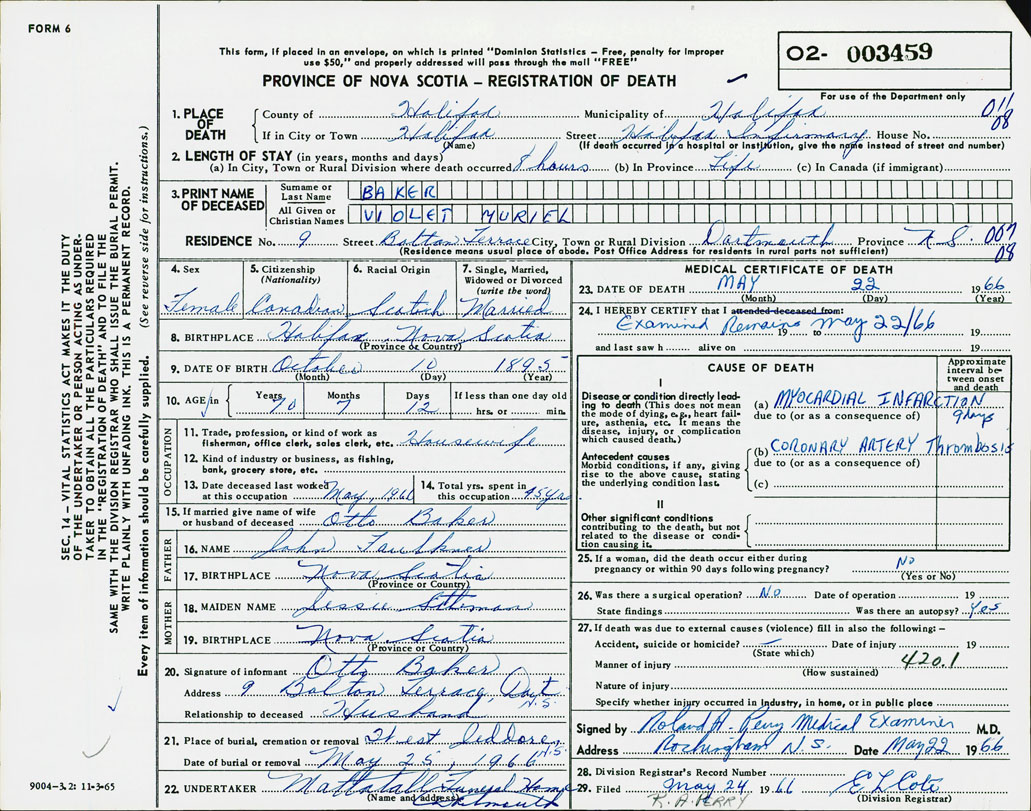 FORM 6
This form, if placed in an envelope, on which is printed "Dominion Statistics – Free, penalty for improper
use $50," and properly addressed will pass through the mail "FREE"
PROVINCE OF NOVA SCOTIA – REGISTRATION OF DEATH
02- 003459
For use of the Department only
1. PLACE OF DEATH
County of Halifax Municipality of Halifax 011
08
If in City or Town Halifax Street Halifax Infirmary House No.
(Name) (If death occurred in a hospital or institution, give the name instead of street and number)
2. LENGTH OF STAY (in years, months and days)
(a) In City, Town or Rural Division where death occurred 8 hours (b) In Province Life (c) In Canada (if immigrant)
3. PRINT NAME OF DECEASED
Surname or Last Name BAKER
All Given or Christian Names VIOLET MURIEL
RESIDENCE No. 9 Street Bolton Terrace City, Town or Rural Division Dartmouth Province N.S. 007
08
(Residence means usual place of abode. Post Office Address for residents in rural parts not sufficient)
4. Sex
Female
5. Citizenship
(Nationality)
Canadian
6. Racial Origin
Scotch
7. Single, Married,
Widowed or Divorced
(write the word)
Married
8. BIRTHPLACE Halifax, Nova Scotia
(Province or Country)
9. DATE OF BIRTH October 10 1895
(Month) (Day) (Year)
10. AGE in Years 70 Months 7 Days 12 If less than one day old
hrs. or min.
OCCUPATION
11. Trade, profession, or kind of work as
fisherman, office clerk, sales clerk, etc. Housewife
12. Kind of industry or business, as fishing,
bank, grocery store, etc.
13. Date deceased last worked
at this occupation May, 1966
14. Total yrs. spent in
this occupation 45 yrs
15. If married give name of wife
or husband of deceased Otto Baker
FATHER
16. NAME John Faulkner
17. BIRTHPLACE Nova Scotia
(Province or Country)
MOTHER
18. MAIDEN NAME Jessie
19. BIRTHPLACE Nova Scotia
(Province or Country)
20. Signature of informant Otto Baker
Address 9 Bolton Terrace, Dart.
N.S.
Relationship to deceased Husband
21. Place of burial, cremation or removal West Jeddore, N.S.
Date of burial or removal May 25, 1966
22. UNDERTAKER Mattatall Funeral Home
(Name and address) Dartmouth
MEDICAL CERTIFICATE OF DEATH
23. DATE OF DEATH MAY 22 1966
(Month) (Day) (Year)
24. I HEREBY CERTIFY that I attended deceased from:
Examined Remains May 22/66
19 to 19
and last saw h alive on 19
CAUSE OF DEATH
Approximate
interval be-
tween onset
and death
I
Disease or condition directly lead-
ing to death (This does not mean
the mode of dying, e.g., heart fail-
ure, asthenia, etc. It means the
disease, injury, or complication
which caused death.)
(a) MYOCARDIAL INFARCTION
due to (or as a consequence of) 9 days
Antecedent causes
Morbid conditions, if any, giving
rise to the above cause, stating
the underlying condition last.
(b) CORONARY ARTERY Thrombosis
due to (or as a consequence of)
(c)
II
Other significant conditions
contributing to the death, but not
related to the disease or condi-
tion causing it.
25. If a woman, did the death occur either during
pregnancy or within 90 days following pregnancy? No
(Yes or No)
26. Was there a surgical operation? No Date of operation 19
State findings Was there an autopsy? Yes
27. If death was due to external causes (violence) fill in also the following: –
Accident, suicide or homicide? – Date of injury 19
(State which)
Manner of injury 420.1
(How sustained)
Nature of injury
Specify whether injury occurred in industry, in home, or in public place
Signed by Roland A. Perry Medical Examiner M.D.
Address Rockingham N.S. Date May 22 1966
28. Division Registrar's Record Number
29. Filed May 24 1966 E L Cote
R. A. PERRY (Division Registrar)
SEC. 14 – VITAL STATISTICS ACT MAKES IT THE DUTY
OF THE UNDERTAKER OR PERSON ACTING AS UNDER-
TAKER TO OBTAIN ALL THE PARTICULARS REQUIRED
IN THE "REGISTRATION OF DEATH" AND TO FILE THE
SAME WITH THE DIVISION REGISTRAR WHO SHALL ISSUE THE BURIAL PERMIT.
WRITE PLAINLY WITH UNFADING INK. THIS IS A PERMANENT RECORD.
Every item of information should be carefully supplied. (See reverse side for instructions.)
9004-3.2: 11-3-65